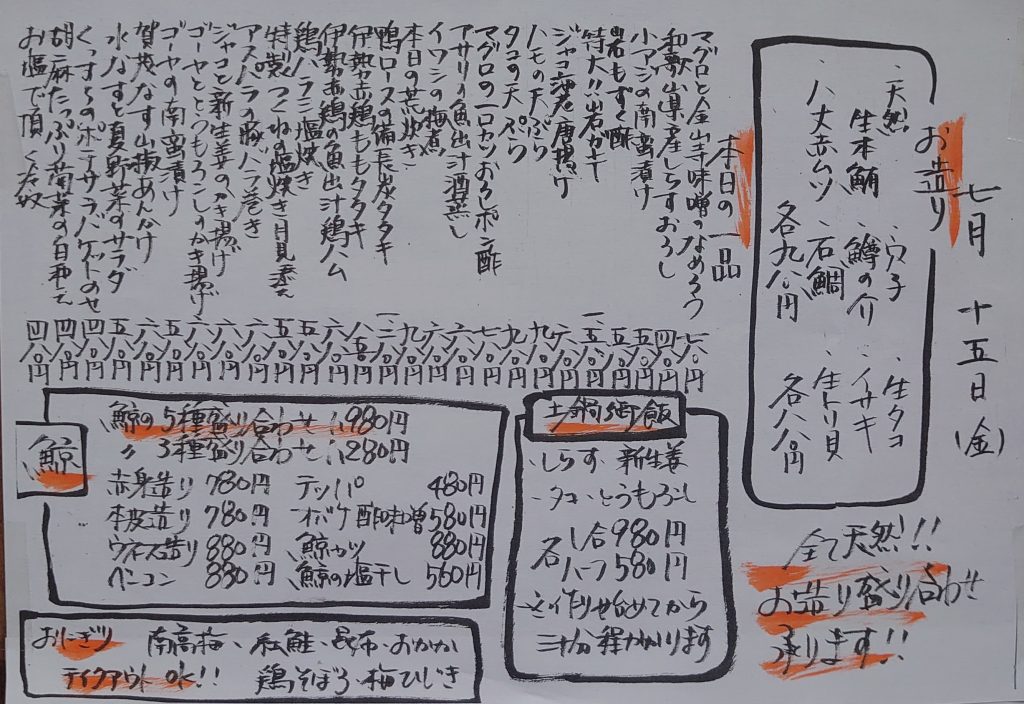 七月 十五日(金)
お造り
・天然 ・穴子 ・生タコ
生本鮪 ・鱒の介 ・イサキ
・八丈赤ムツ ・石鯛 ・生トリ貝
各九八〇円 各八八〇円
全て天然!!
お造り盛り合わせ
承ります!!
本日の一品
マグロと金山寺味噌のなめろう 七八〇円
和歌山県産しらすおろし 四八〇円
小アジの南蛮漬け 五八〇円
岩もずく酢 五八〇円
特大!!岩ガキ 一五八〇円
ジャコ海老唐揚げ 六八〇円
ハモの天ぷら 九八〇円
タコの天ぷら 九八〇円
マグロの一口カツおろしポン酢 七八〇円
アサリの魚出汁酒蒸し 六八〇円
イワシの梅煮 六八〇円
本日の荒炊き 九八〇円
鴨ロースの備長炭タタキ 一二八〇円
伊勢赤鶏ももタタキ 八五〇円
伊勢赤鶏の魚出汁鶏ハム 六八〇円
鶏ハラミ塩焼き 五八〇円
特製つくねの塩焼き月見添え 五八〇円
アスパラの豚バラ巻き 六八〇円
ジャコと新生姜のかき揚げ 六八〇円
ゴーヤととうもろこしのかき揚げ 六八〇円
ゴーヤの南蛮漬け 五八〇円
賀茂なす山椒あんかけ 六八〇円
水なすと夏野菜のサラダ 五八〇円
くっすらのポテサラバゲットのせ 四八〇円
胡麻たっぷり青菜の白和え 四八〇円
お塩で頂く冷奴 四八〇円
土鍋御飯
・しらす・新生姜
・タコ・とうもろこし
各一合980円
各ハーフ580円
※作り始めてから
三十分程かかります
鯨
鯨の5種盛り合わせ 1,980円
〃 3種盛り合わせ 1,280円
赤身造り 780円 テッパ 480円
本皮造り 780円 オバケ酢味噌 580円
ウネス造り 880円 鯨カツ 880円
ベーコン 880円 鯨の塩干し 560円
おにぎり 南高梅・紅鮭・昆布・おかか
テイクアウトOK!! 鶏そぼろ・梅ひじき